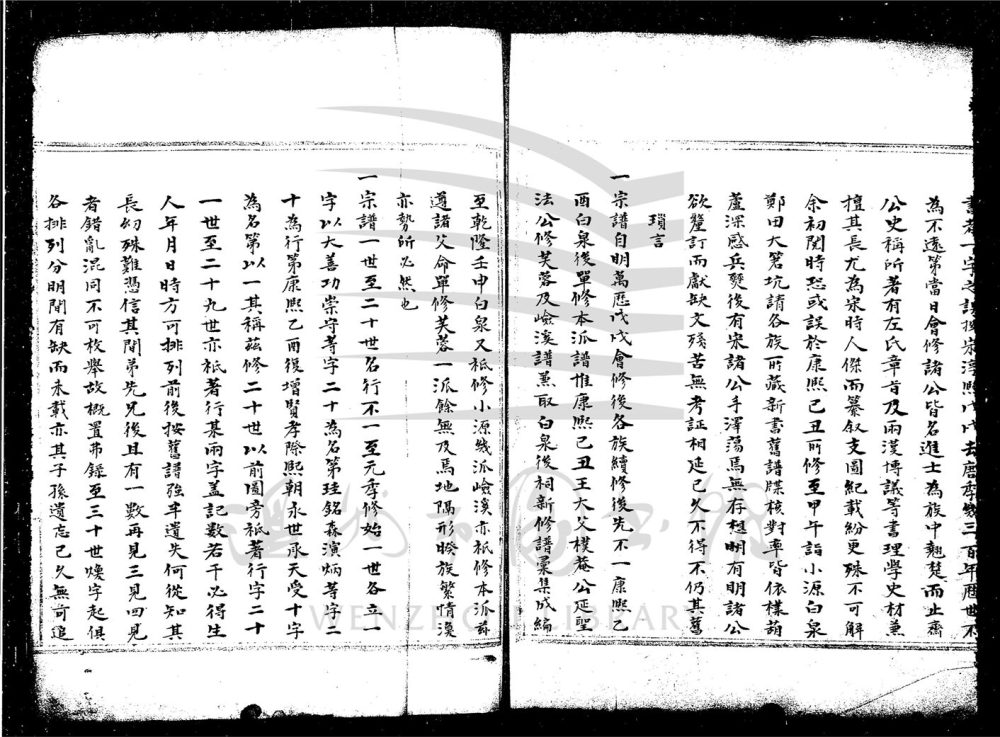 書者一字之誤按宋淳熙戊戌去唐季幾三百年歷世不
為不遠第當日會修諸公皆名進士為族中翹楚而止齋
公史稱所著有左氏章旨及兩漢博議等書理學史材兼
擅其長尤為宋時人傑而纂叙支圖紀載紛更殊不可解
余初閱時恐或誤於康熙己丑所修至甲午詣小源白泉
鄭田大箬坑諸各族所藏新書舊譜牒核對率皆依樣葫
蘆深惑兵燹後有宋諸公手澤蕩焉無存想明有明諸公
欲釐訂而獻缺文殘苦無考証相延已久不得不仍其舊
瑣言
一宗譜自明萬歷戊戌會修後各族續修後先不一康熙乙
酉白泉後單修本派譜惟康熙己丑王大父樸菴公延聖
法公修芙蓉及嶮溪譜兼取白泉後祠新修譜彙集成編
至乾隆壬申白泉又祗修小源幾派嶮溪亦祗修本派茲
遵諸父命單修芙蓉一派餘無及焉地隔形睽族繁情渙
亦勢所必然也
一宗譜一世至二十世名行不一至元季修始一世各立一
字以大善功崇守等字二十為名第珪銘森演炳等字二
十為行第康熙乙酉後增賢孝際熙朝永世承天受十字
為名第以一其稱茲修二十世以前圖旁祗著行字二十
一世至二十九世亦祗著行某兩字蓋記數若干必得生
人年月日時方可排列前後按舊譜強半遺失何從知其
長幼殊難憑信其間弟先兄後且有一數再見三見四見
者錯亂混同不可枚舉故概置弗錄至三十世煥字起俱
各排列分明間有缺而未載亦其子孫遺忘已久無可追
WENZHOU LIBRARY